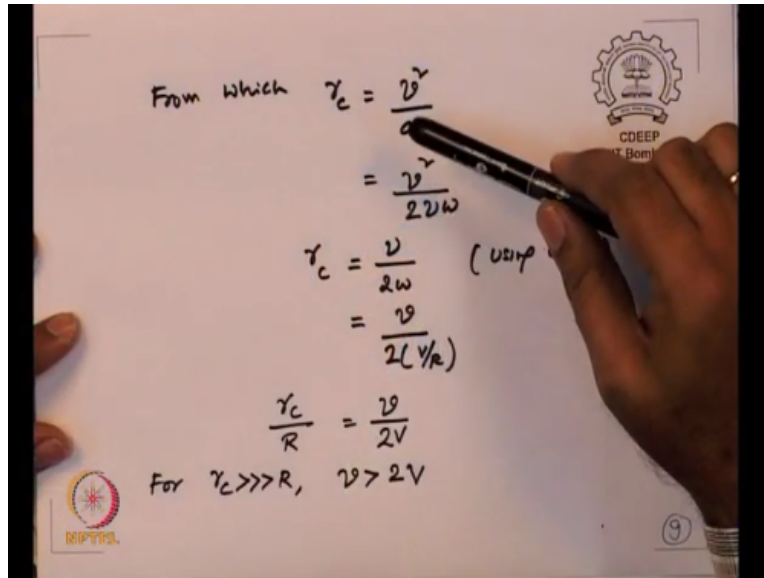 From which r_c = v²/
= v²/2vω
r_c = v/2ω (using
= v/2(V/R)
r_c/R = v/2V
For r_c >>> R, v > 2V
CDEEP
IT Bom
NPTEL
9